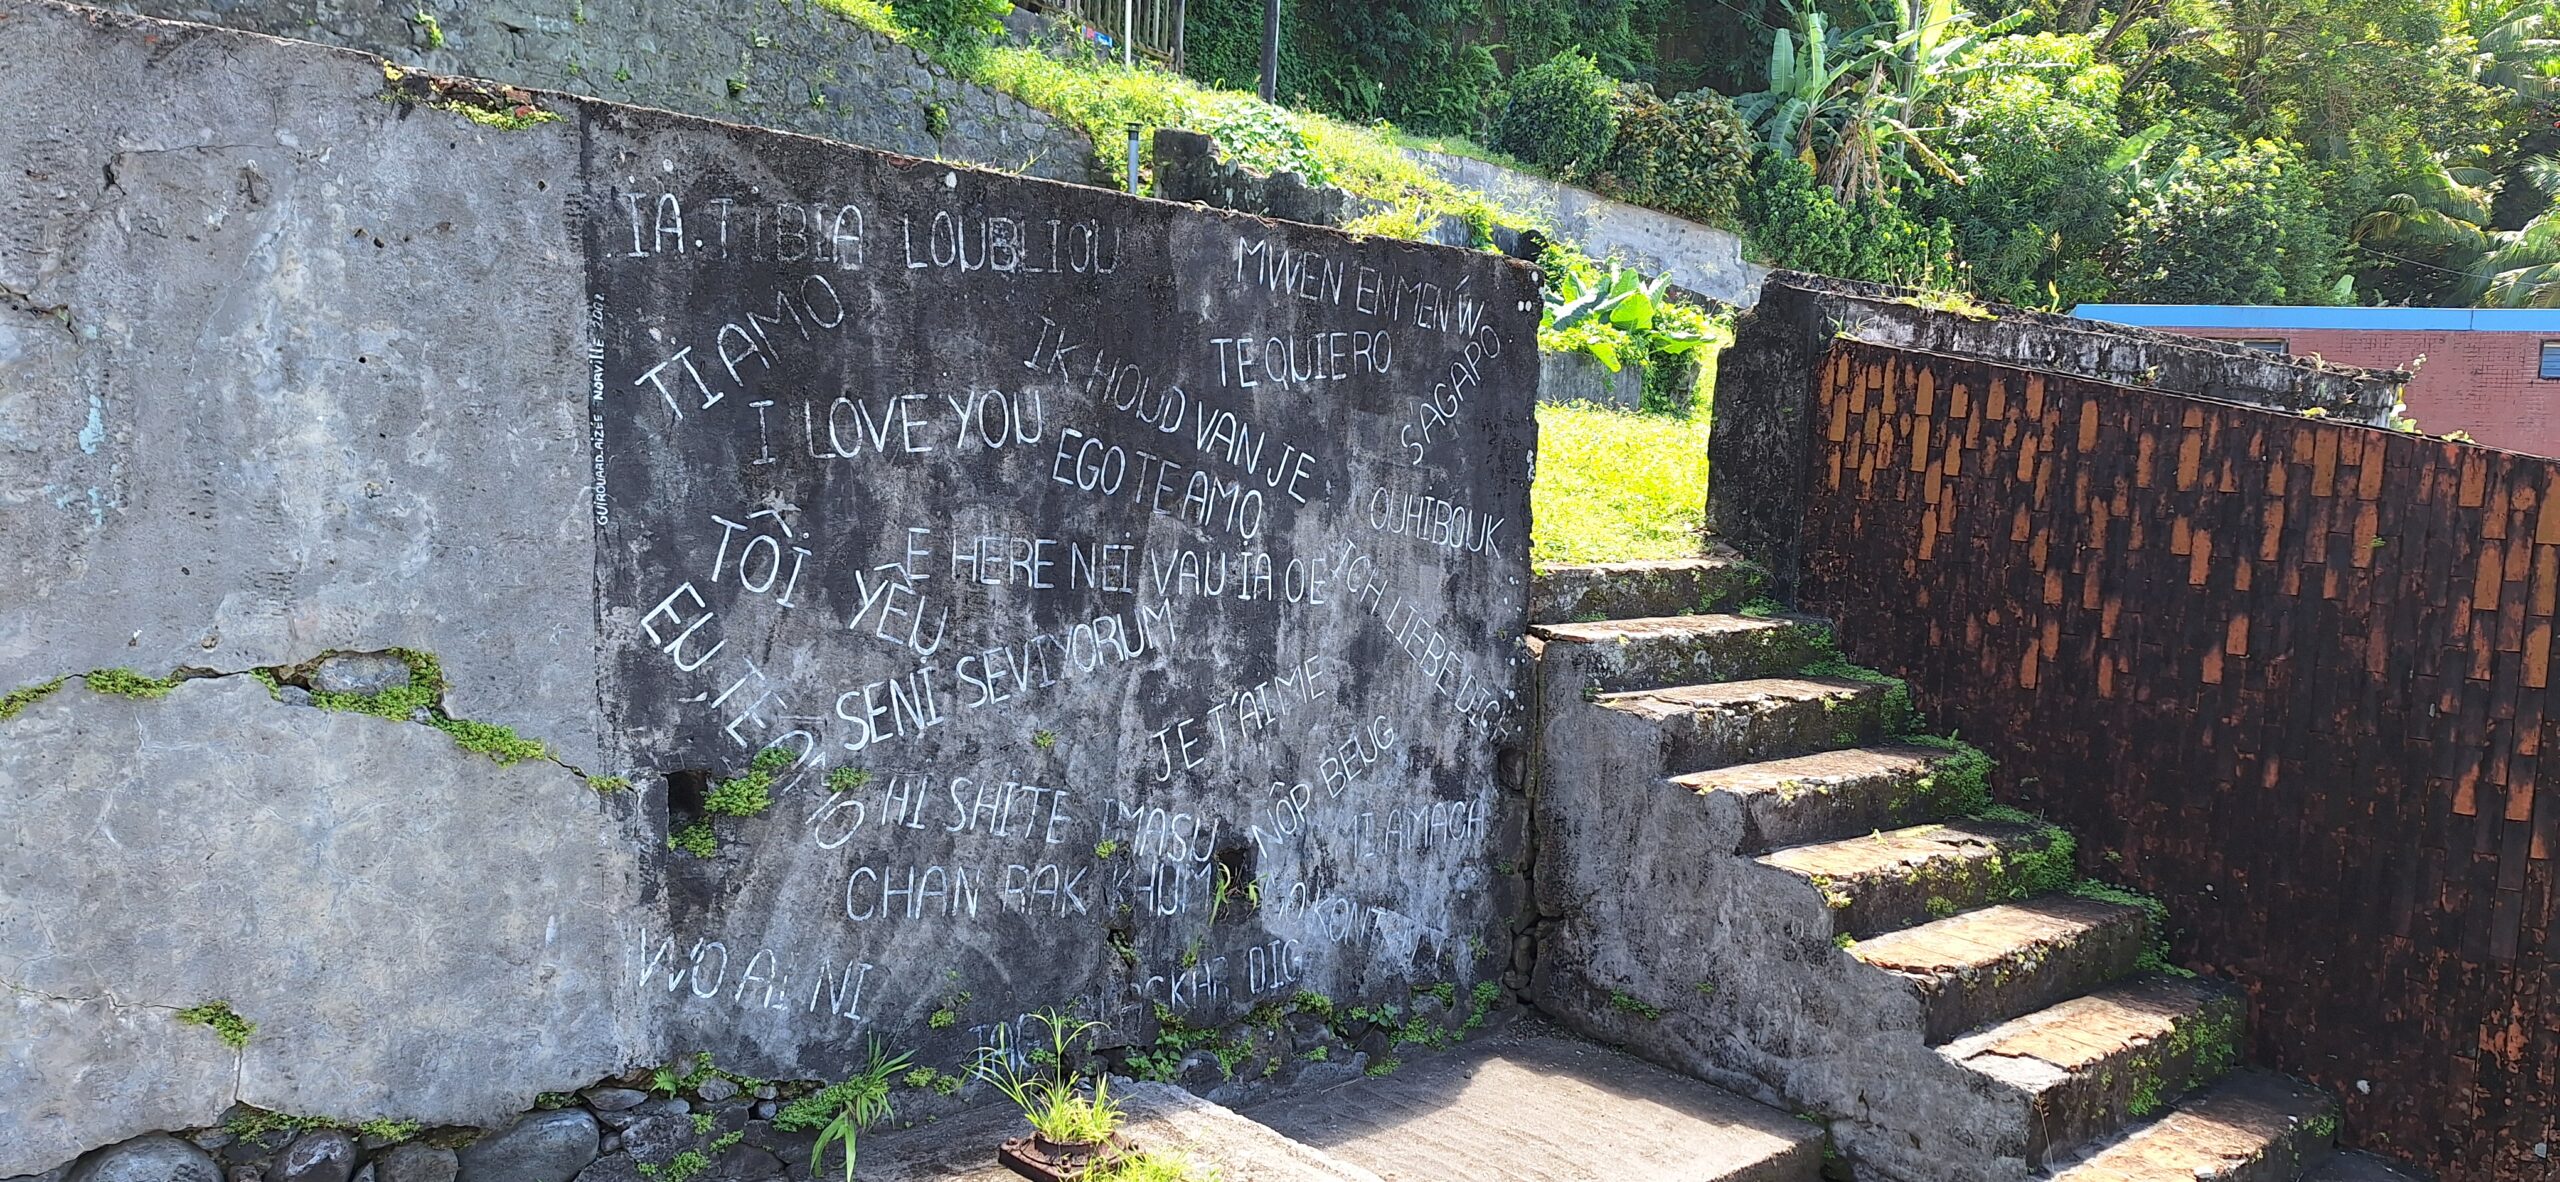 IA.TIBIA LOUBLIOU
MWEN ENMEN'W
TI AMO
TE QUIERO
IK HOUD VAN JE
S'AGAPO
I LOVE YOU
EGO TE AMO
OUHIBOUK
TÔI YÊU
E HERE NEI VAU IA OE
ICH LIEBE DICH
EU, TE AMO
SENI SEVIYORUM
JE T'AIME
NÔP BEUG
HI SHITE IMASU
MI AMACA
CHAN RAK KHUM
WO AI NI
DIG
GUIROUARD.AIZÉE NORVILLE 2002